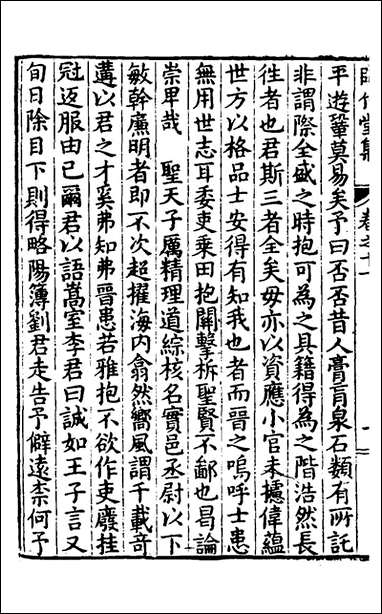 平遊鞏莫易矣予曰否否昔人膏肓泉石類有所託
非謂際全盛之時抱可為之具籍得為之階浩然長
徃者也君斯三者全矣毋亦以資應小官未攄偉蘊
世方以格品士安得有知我也者而晉之嗚呼士患
無用世志耳委吏乗田抱關擊柝聖賢不鄙也曷論
崇卑哉　聖天子厲精理道綜核名實邑丞尉以下
敏幹廉明者即不次超擢海内翕然嚮風謂千載竒
遘以君之才奚弗知弗晉患若雅抱不欲作吏廢挂
冠返服由已爾君以語嵩室李君曰誠如王子言又
旬日除目下則得略陽簿劉君走告予僻遠柰何予